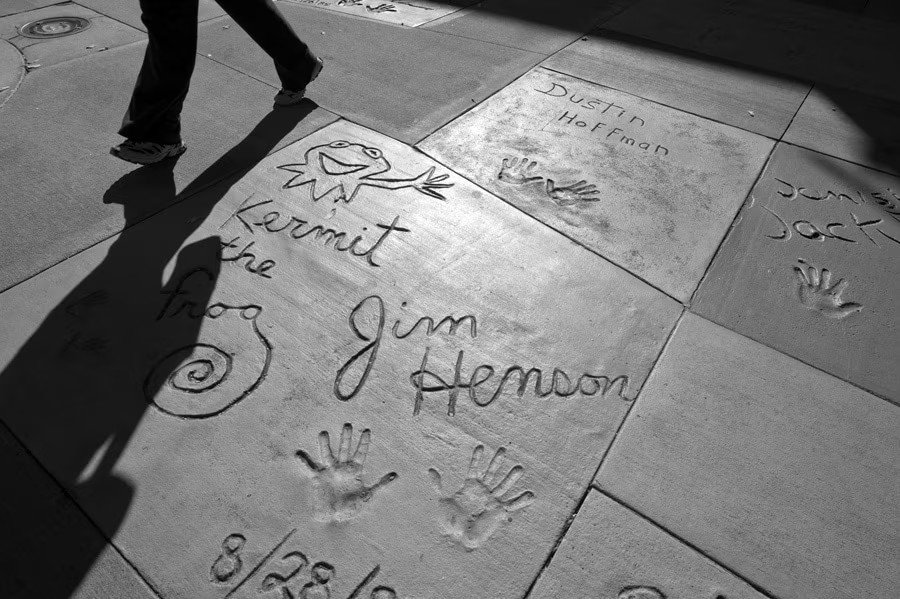 Dustin
Hoffman
Jack
Kermit
the
frog
Jim
Henson
8/28/